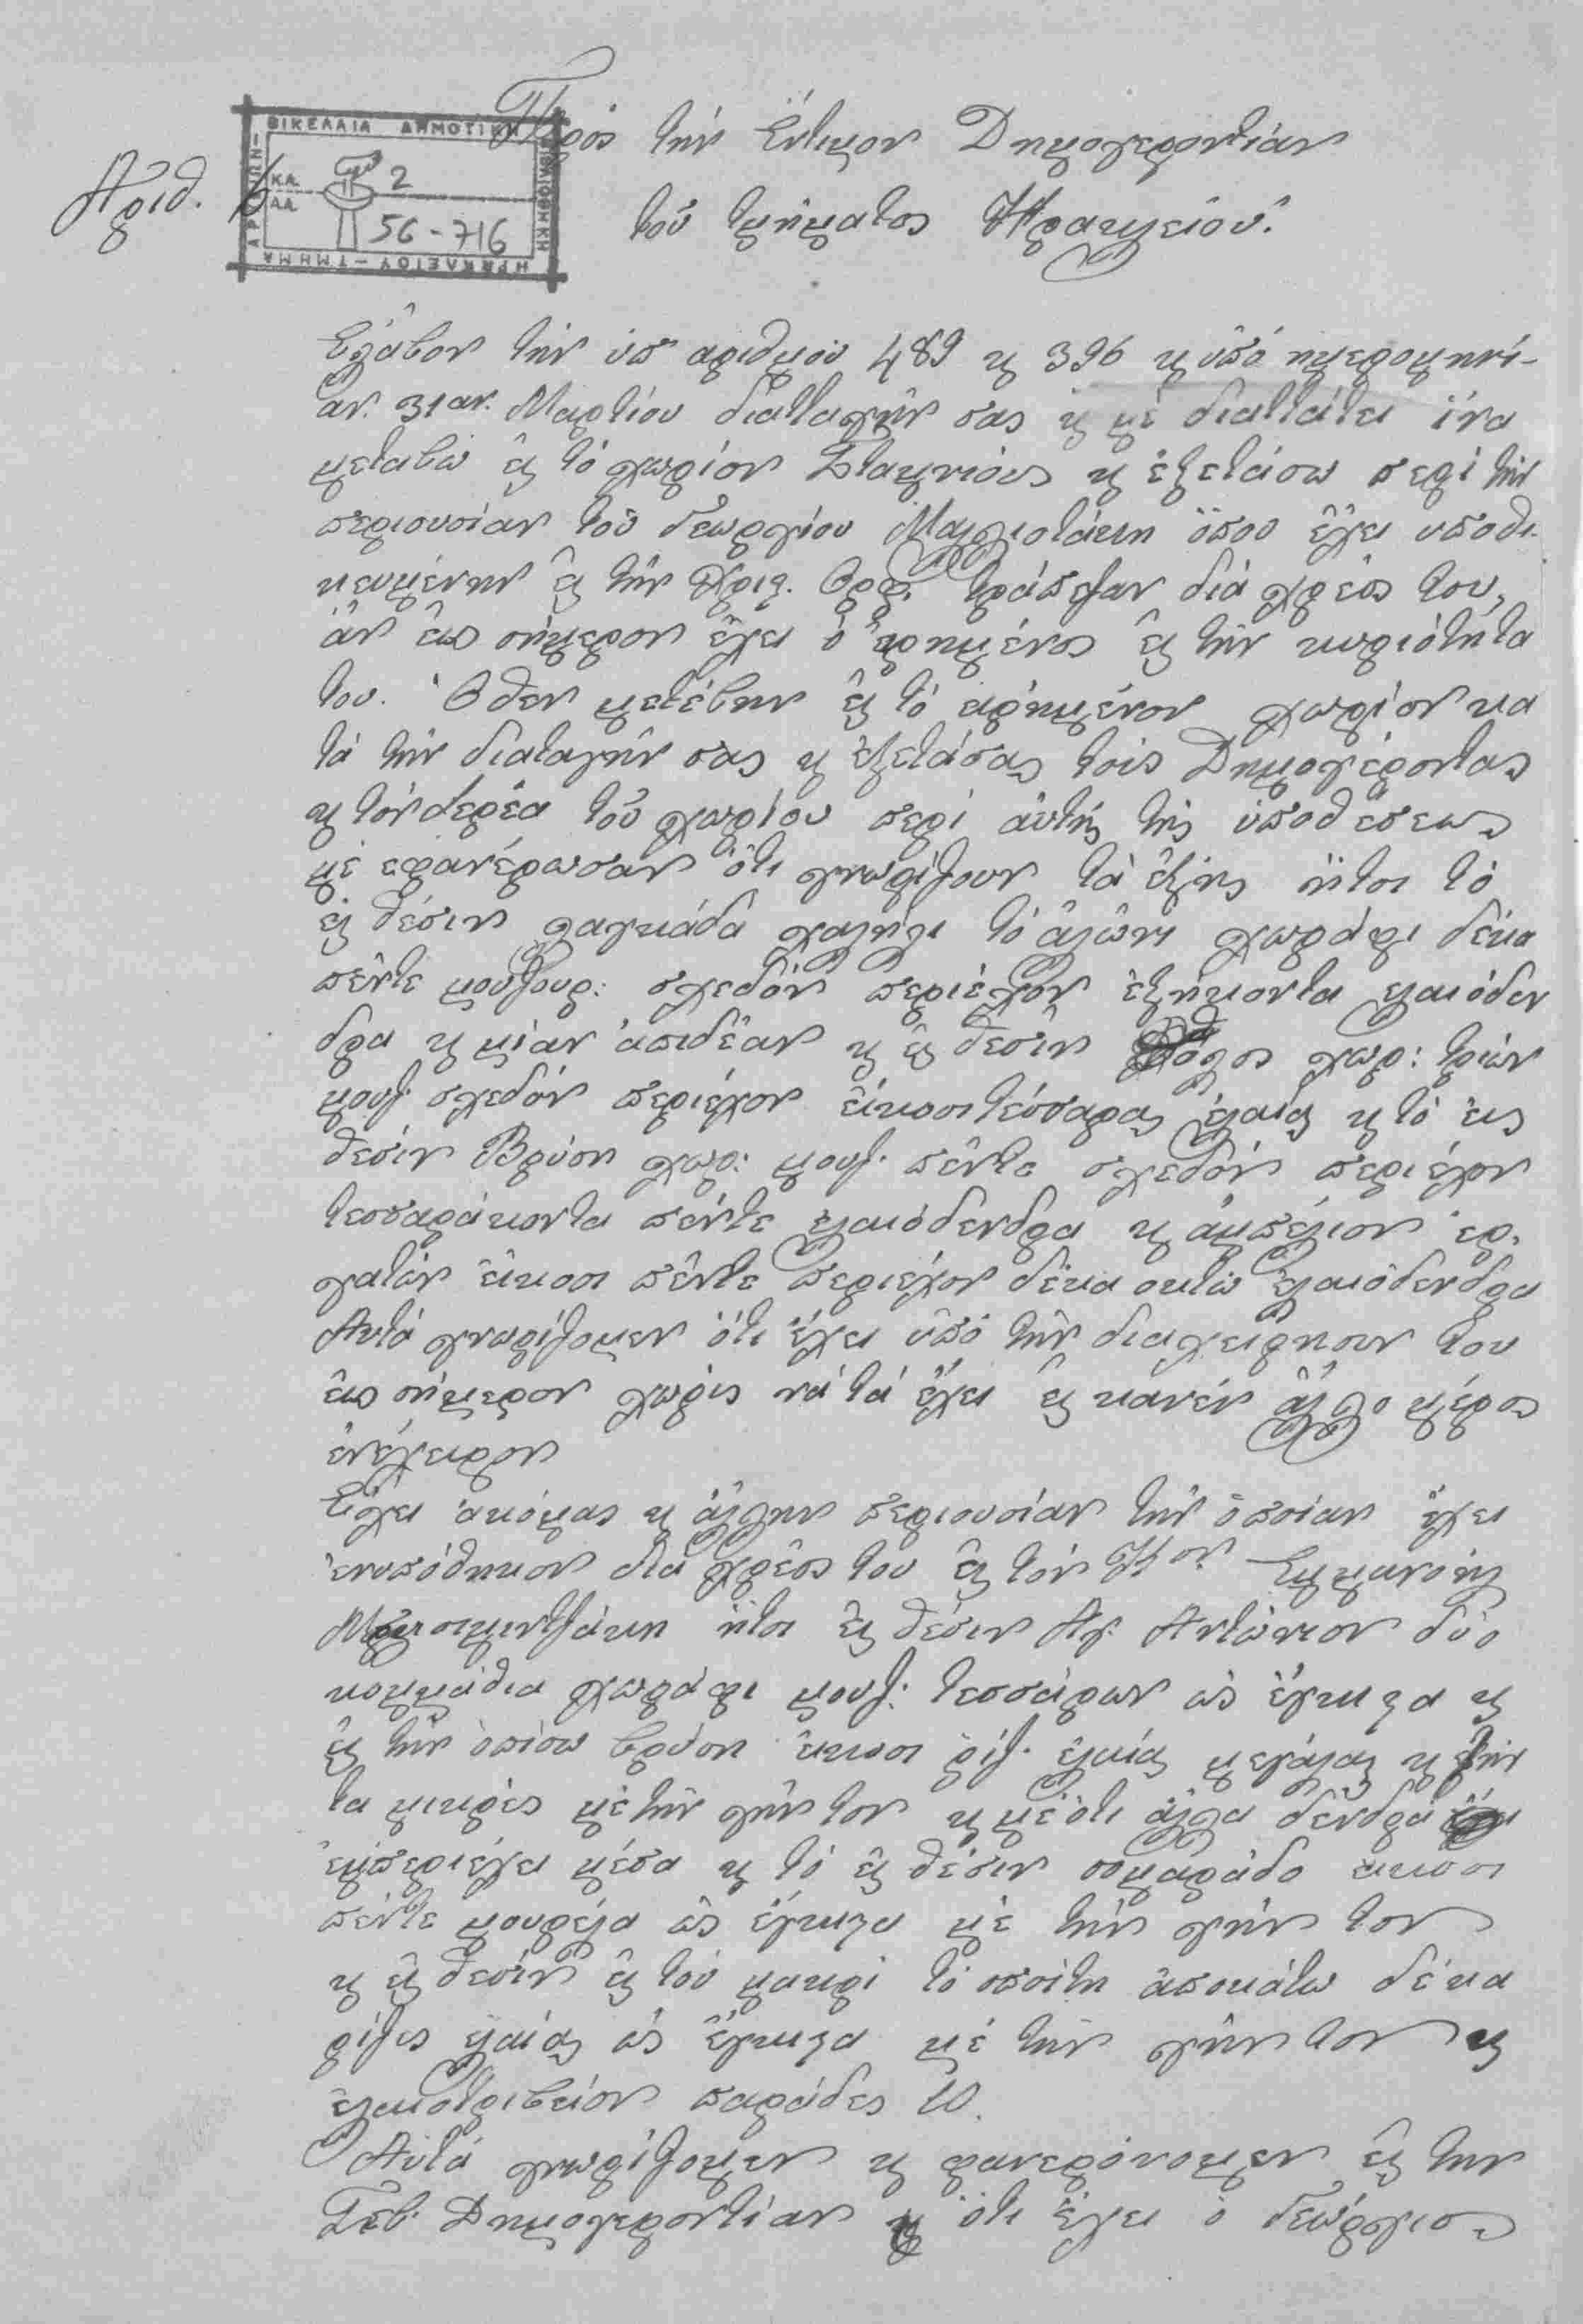 Πρὸς τήν ἔντιμον Δημογεροντίαν
τοῦ τμήματος Ἡρακλείου.
Ἀριθ. 6
ΒΙΚΕΛΑΙΑ ΔΗΜΟΤΙΚΗ ΒΙΒΛΙΟΘΗΚΗ
ΗΡΑΚΛΕΙΟΥ - ΤΜΗΜΑ
Κ.Α. 2
Α.Α. 56-716
Ἐλάβον τήν ὑπ' ἀριθμον 489 κ 396 κ ὑπό ἡμερομηνί-
αν. 31 αν. Μαρτίου διαταγήν σας κ μέ διαττάτει ἵνα
μεταβῶ εἰς τό χωρίον Σταμνιούς κ ἐξετάσω περί τήν
περιουσίαν τοῦ Γεωργίου Μαλλιοτάκη ὅπου ἔχει υποθη
κευμένην εἰς τήν Χριστ. Ὀρφ. τράπεζαν διά χρέος του,
ἄν ἕως σήμερον ἔχει ὁ εἰρημένος εἰς τήν κυριότητα
του. Ὅθεν μετέβην εἰς τό εἰρημένον χωρίον κα
τά τήν διαταγήν σας κ ἐξετάσας τούς Δημογέροντας
κ τόν ἱερέα τοῦ χωρίου περί αὐτῆς τῆς ὑποθέσεως
μέ εφανέρωσαν ὅτι γνωρίζουν τά ἑξῆς ἤτοι τό
εἰς θέσιν λαγκάδα χαλήλι τό ἀλώνι χωράφι δέκα
πέντε μουζουρ: σχεδόν περιέχον ἑξήκοντα ελαιόδεν
δρα κ μίαν ἀπιδέαν κ εἰς θεσιν χωρ: τριῶν
μουζ. σχεδόν περιέχον εἴκοσι τέσσαρας ἐλαίας κ τό εἰς
θεσιν Βρύση χωρ: μουζ. πέντε σχεδόν περιέχον
τεσσαράκοντα πέντε ελαιόδενδρα κ ἀμπέλιον ερ-
γατῶν εἴκοσι πέντε περιέχον δέκα οκτώ ἐλαιόδενδρα
Αυτά γνωρίζομεν ὅτι ἔχει ὑπό τήν διαχείρησιν του
ἕως σήμερον χωρίς νά τά ἔχει εἰς κανέν ἄλλο μέρος
ἐνέχειρον
Ἔχει ἀκόμας κ ἄλλην περιουσίαν τήν ὁποίαν ἔχει
ἐνυπόθηκον διά χρέος του εἰς τόν Κον Ἐμμανουήλ
ἤτοι εἰς θέσιν Αγ. Αντώνιον δύο
κομμάθια χωράφι μουζ: τεσσάρων ὡς ἔγγιστα κ
εἰς τήν ὀπίσω βρύση εἴκοσι ρίζ. ἐλαίας μεγάλας κ
τα μικρές μέ τήν γῆν των κ μέ ὅτι ἄλλα δένδρα
ἐμπεριέχει μέσα κ τό εἰς θέσιν σαμαράδο εικοσι
πέντε μουρέλα ὡς ἔγγιστα μέ τήν γῆν των
κ εἰς θεσιν εἰς τοῦ μακρί τό σπίτη ἀποκάτω δέκα
ρίζες ἐλαίας ὡς ἔγγιστα μέ τήν γῆν των κ
ελαιοτριβεῖον παράδες 10.
Αυτά γνωρίζομεν κ φανερόνομεν εἰς τήν
Σεβ. Δημογεροντίαν κ ὅτι ἔχει ὁ Γεώργιος